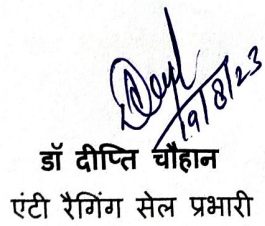 19/8/23
डॉ दीप्ति चौहान
एंटी रैगिंग सेल प्रभारी